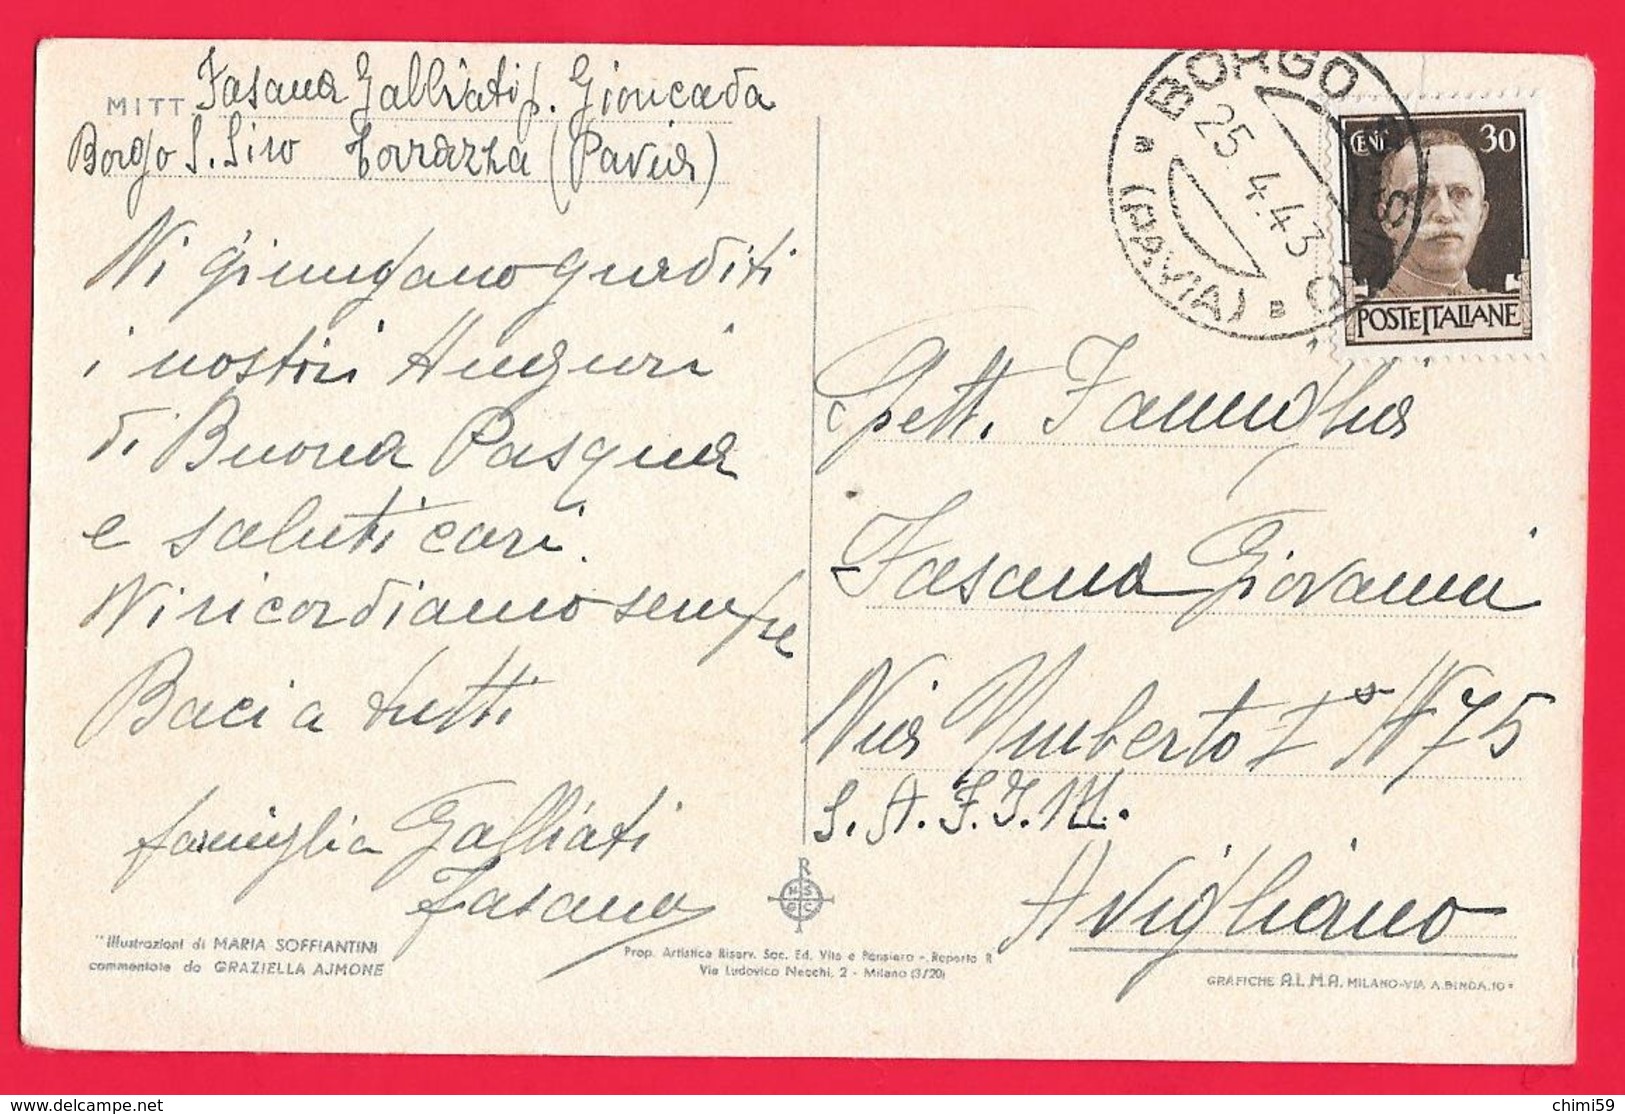 MITT. Fasana Galliati p. Gioncada
Borgo S. Siro Torrazza (Pavia)
Vi giungano graditi
i nostri Auguri
di Buona Pasqua
e saluti cari.
Vi ricordiamo sempre
Baci a tutti
famiglia Galliati
Fasana
"Illustrazioni di MARIA SOFFIANTINI
commentate da GRAZIELLA AJMONE
Prop. Artistica Riserv. Soc. Ed. Vita e Pensiero - Reparto R
Via Ludovico Necchi, 2 - Milano (3/20)
BORGO S. SIRO
25.4.43
(PAVIA)
CENT 30
POSTE ITALIANE
Spett. Famiglia
Fasana Giovanni
Via Umberto I° N 75
S. A. F. F. M.
Avigliano
GRAFICHE A.L.M.A. MILANO-VIA A. BINDA. 10
chimi59